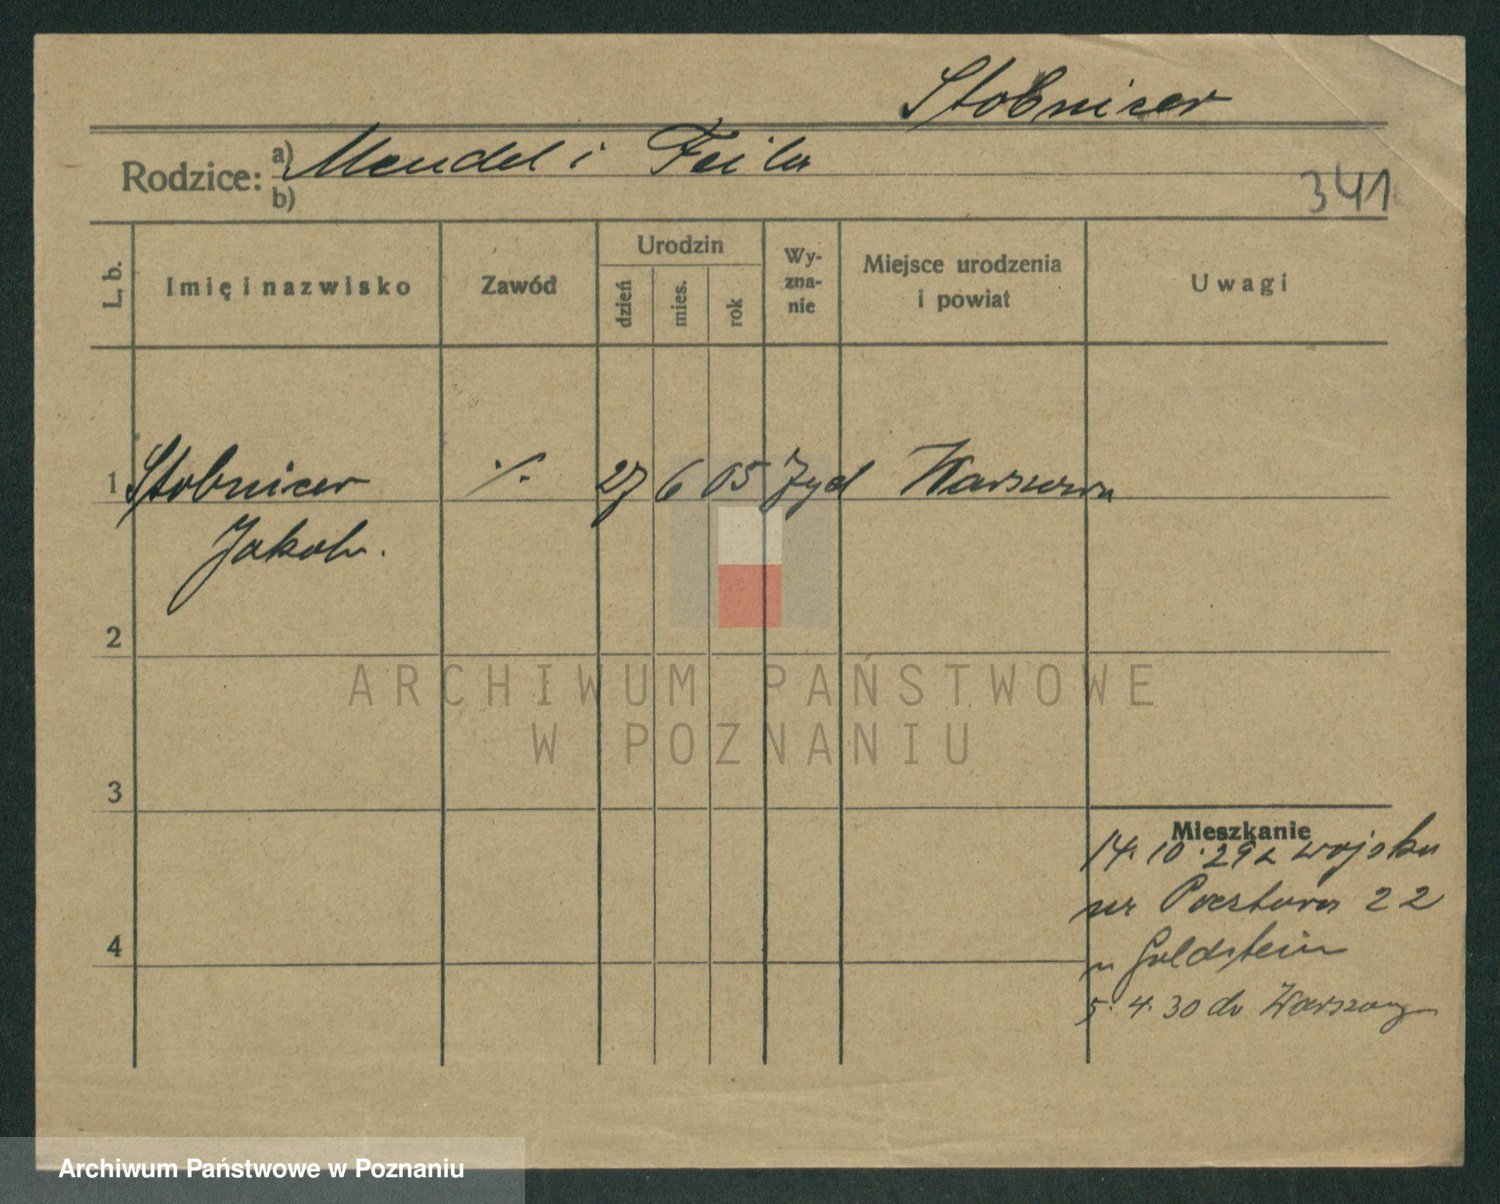 Stobnicer
Rodzice: a) Mendel i Feila
b)
341
L. b.
Imię i nazwisko
Zawód
Urodzin
dzień
mies.
rok
Wy-
zna-
nie
Miejsce urodzenia
i powiat
Uwagi
1 Stobnicer ./. 27 6 05 Żyd Warszawa
Jakob.
2
3
4
Mieszkanie
14. 10. 29 z wojska
ur Pocztowa 22
u Goldstein
5. 4. 30 do Warszawy
ARCHIWUM PAŃSTWOWE
W POZNANIU
Archiwum Państwowe w Poznaniu